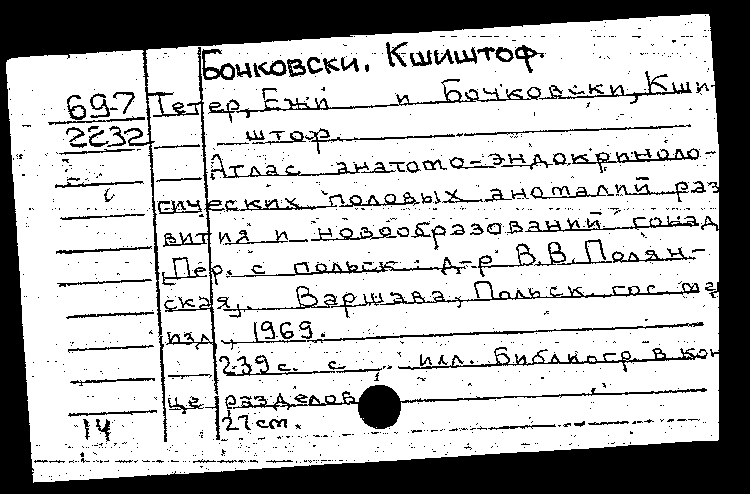 Бочковски, Кшиштоф.
69-7 Тетер, Ежи и Бочковски, Кши-
2232 штоф.
Атлас анатомо-эндокриноло-
гических половых аномалий раз
вития и новообразований гонад
[Пер. с польск. д-р В.В. Полян-
ская]. Варшава, Польск. гос. ме
изд., 1969.
239 с. с илл. Библиогр. в кон
це разделов
14 27 cm.